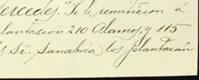 Mercedes." Se le remitieron á
plantación 210 Alamos y 115
Sr. Sanabria los plantarán